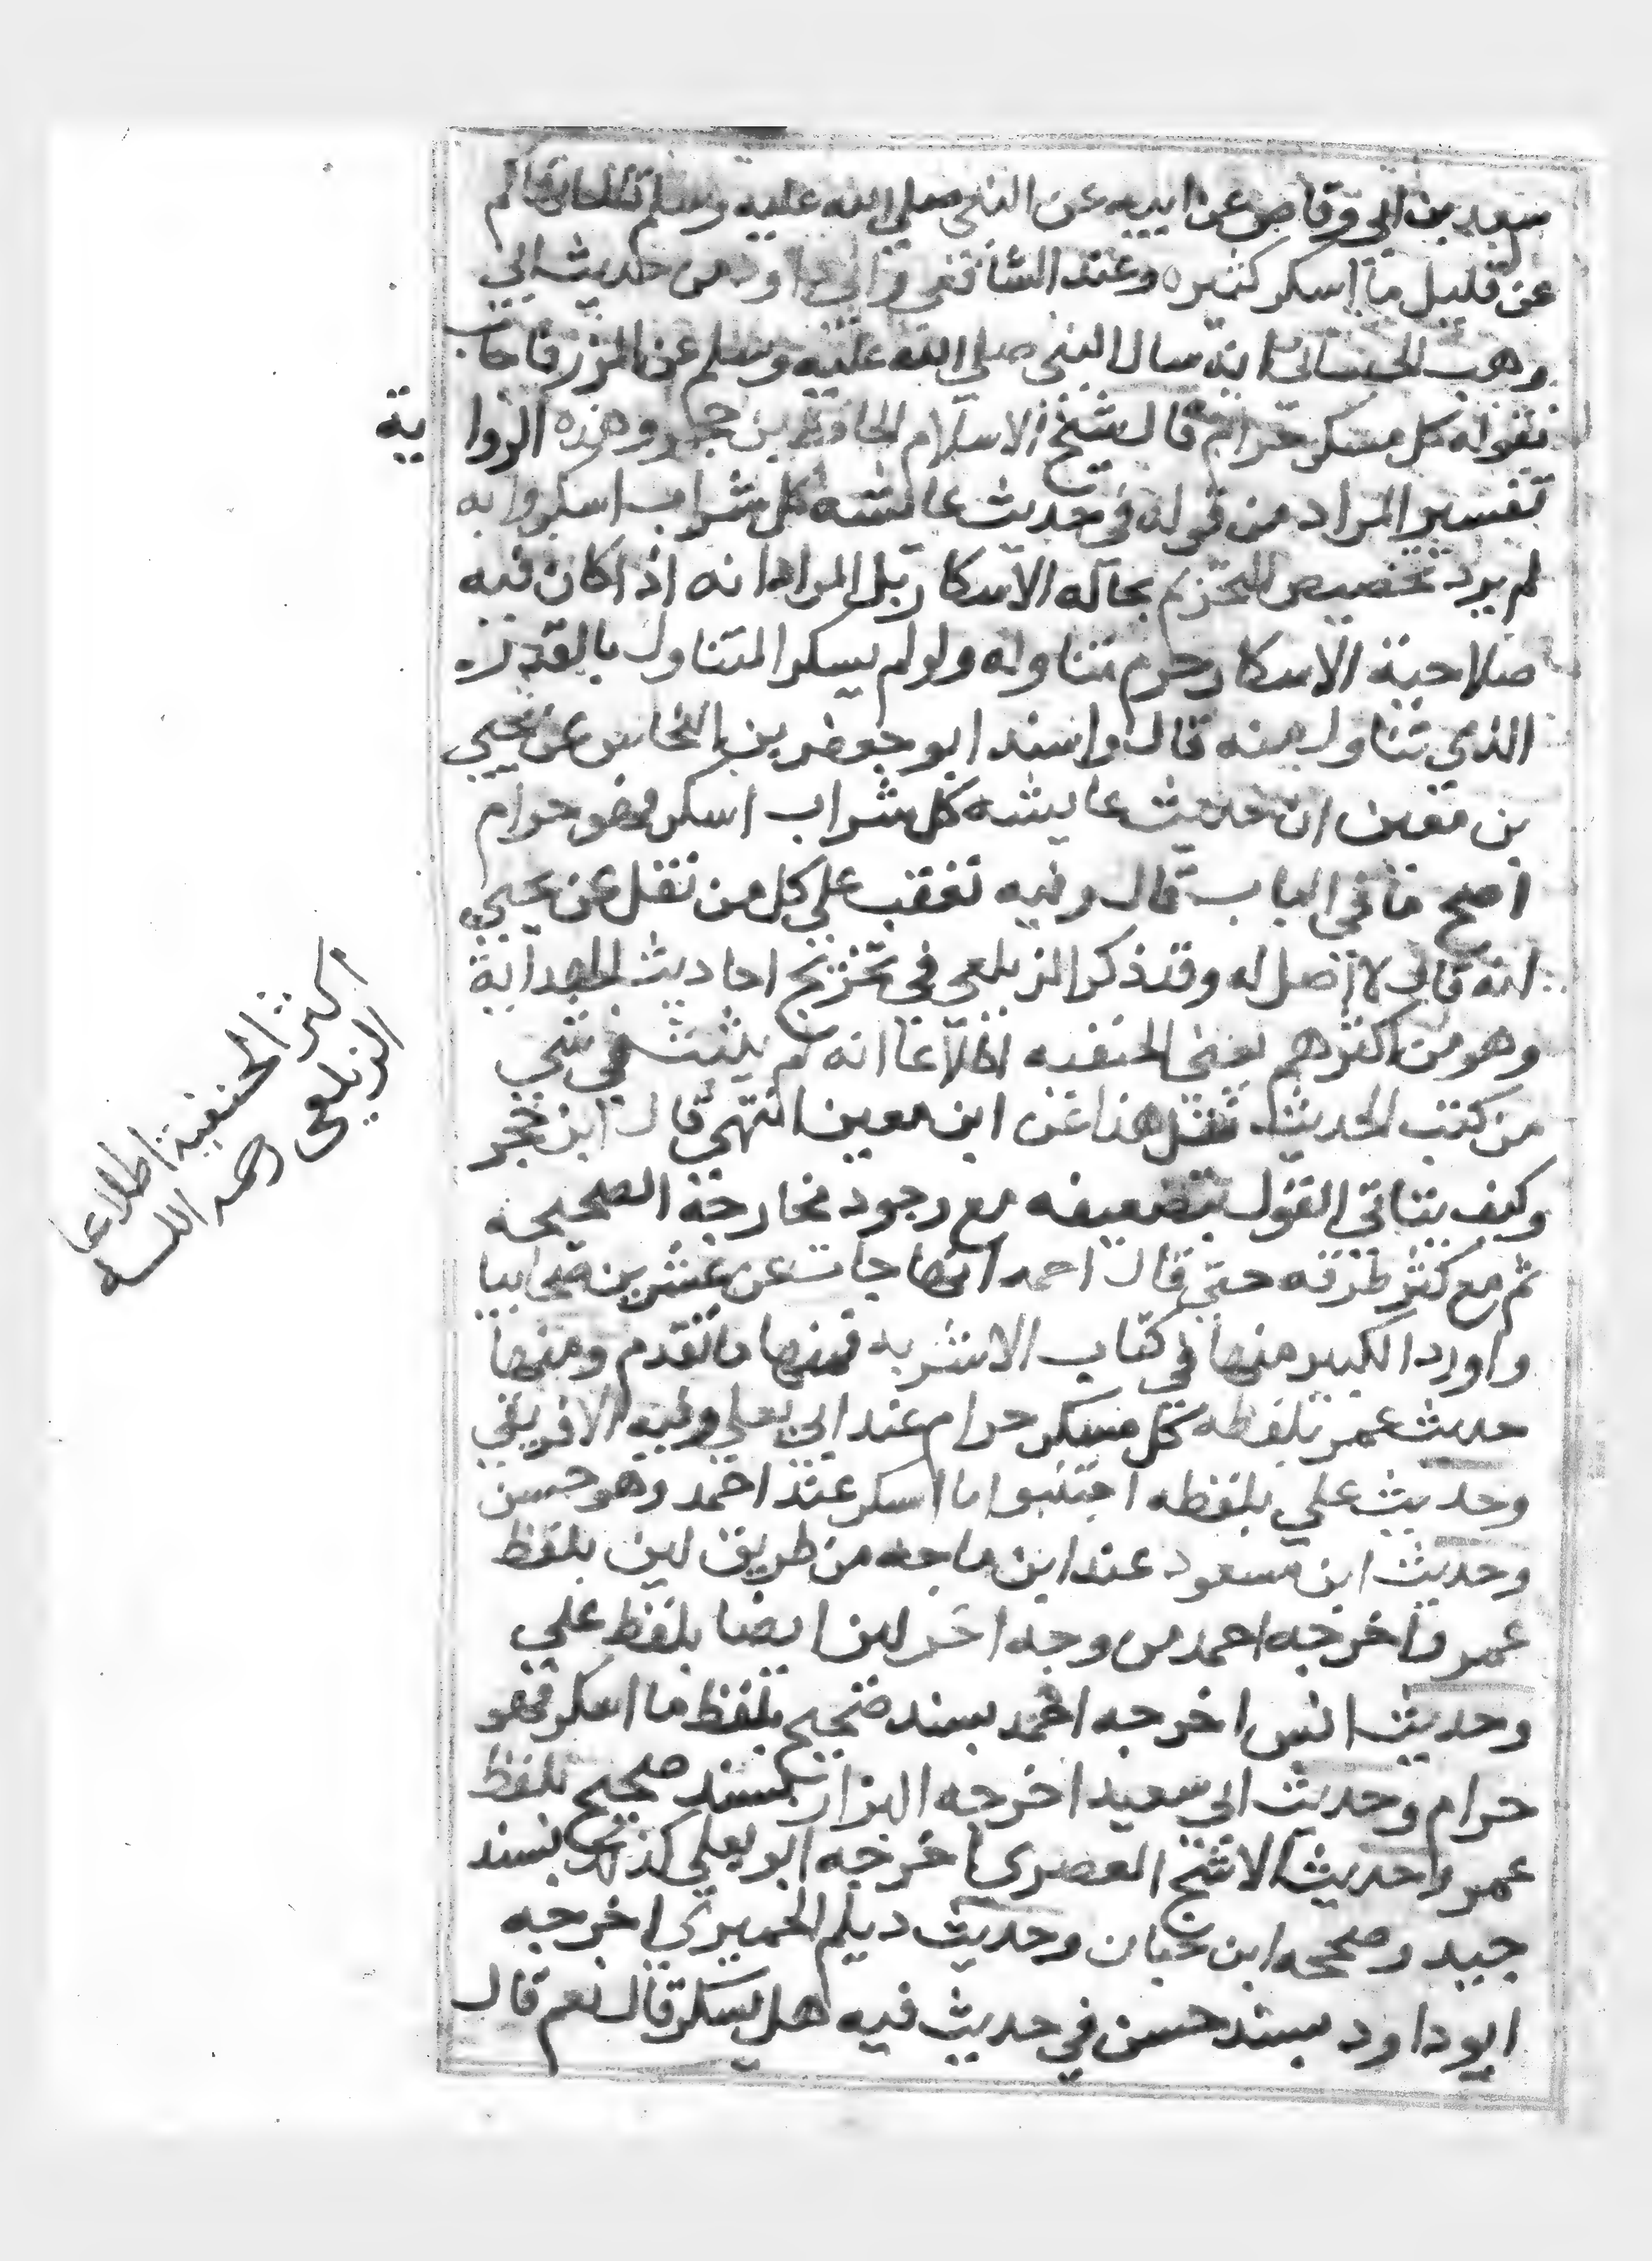 سعد بن ابي وقاص عن ابيه عن النبي صلى الله عليه وسلم قال انهاكم
عن قليل ما اسكر كثيره وعند الشافعي وابي داود من حديث ابي
وهب الجيشاني انه سال النبي صلى الله عليه وسلم عن المزر فاجاب
بقوله كل مسكر حرام قال شيخ الاسلام الحافظ بن حجر وهذه الرواية
تفسير المراد من قوله في حديث عائشه كل شراب اسكر وانه
لم يرد تخصيص التحريم بحاله الاسكار بل المراد انه اذا كان فيه
صلاحية الاسكار حرم تناوله ولو لم يسكر المتناول بالقدر
الذي تناول منه قال واسند ابو جعفر بن النحاس عن يحيي
بن معين ان حديث عايشه كل شراب اسكر فهو حرام
اصح ما في الباب قال وفيه تعقب على كل من نقل عن يحيي
انه قال لا اصل له وقد ذكر الزيلعي في تخريج احاديث الهداية
وهو من اكثرهم يعني الحنفيه اطلاعا انه لم يثبت في شي
من كتب الحديث نقل هذا عن ابن معين انتهي قال ابن حجر
وكيف يتاتي القول بتضعيفه مع وجود مخارجه الصحيحه
ثم مع كثر طرقه حتي قال احمد انها جات عن عشرين صحابيا
واورد الكبير منها في كتاب الاشربه فمنها ما تقدم ومنها
حديث عمر بلفظه كل مسكر حرام عند ابي يعلي وفيه الافريقي
وحديث علي بلفظه اجتنبوا ما اسكر عند احمد وهو حسن
وحديث ابن مسعود عند ابن ماجه من طريق لين بلفظ
عمر واخرجه احمد من وجه اخر لين ايضا بلفظ علي
وحديث انس اخرجه احمد بسند صحيح بلفظ ما اسكر فهو
حرام وحديث ابي سعيد اخرجه البزار بسند صحيح بلفظ
عمر وحديث الاشج العصري اخرجه ابو يعلي كذلك بسند
جيد وصححه ابن حبان وحديث ديلم الحميري اخرجه
ابو داود بسند حسن في حديث فيه هل يسكر قال نعم قال
اكثر الحنفية اطلاعا
الزيلعي رحمه الله